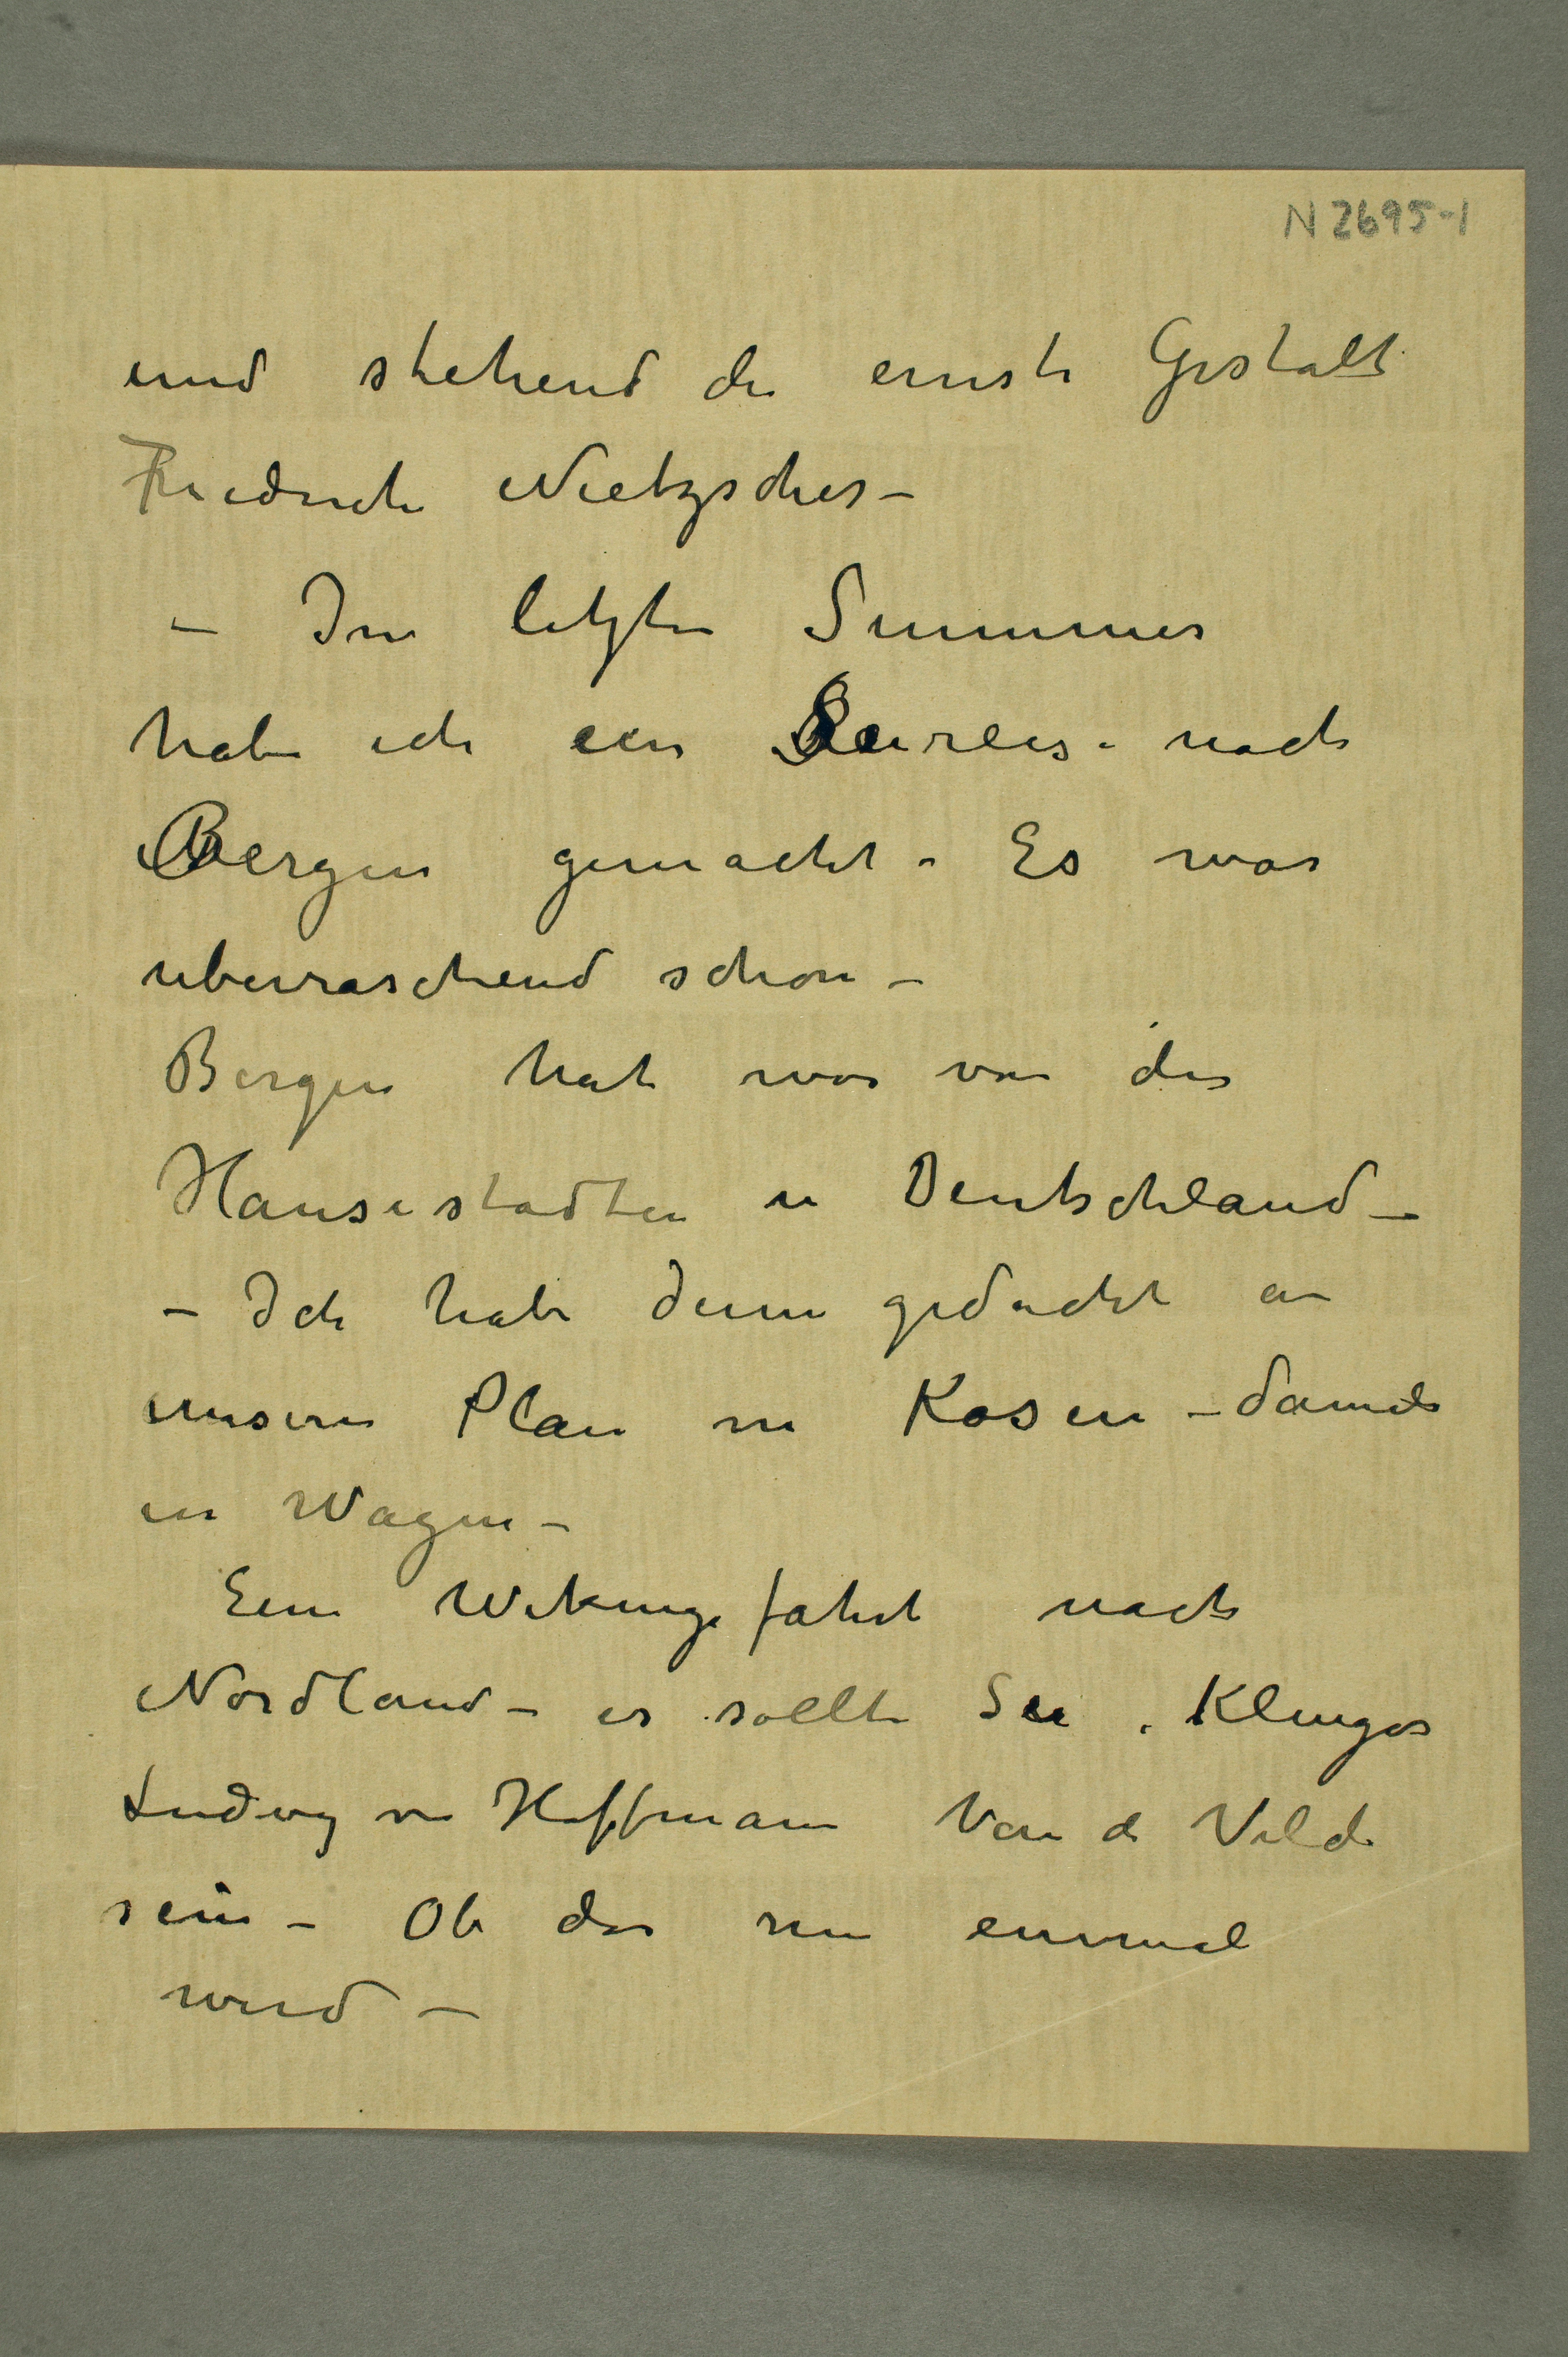 N 2695-1
und stehend die ernste Gestalt
Friedrich Nietzsches –
– Im letzten Summer
habe ich ein Seereise nach
Bergen gemacht. Es war
uberraschend schon –
Bergen hat was von die
Hansestadten in Deutschland –
– Ich habe denn gedacht an
unsern Plan in Kosen – damals
in Wagen –
Eine Wikingefahrt nach
Nordland – es sollte Sie, Klinger
Ludvig von Hoffmann Van de Velde
sein – Ob das nu einmal
wird –